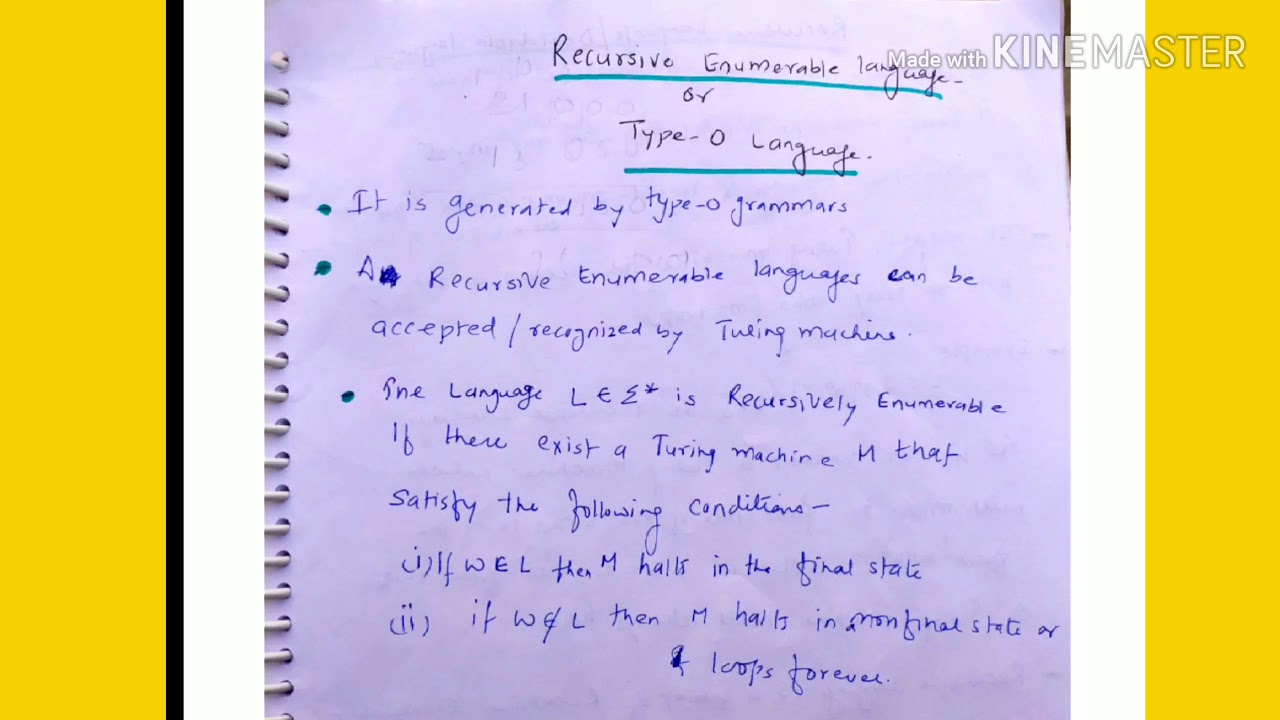 Made with KINEMASTER
Recursive Enumerable language.
or
Type-0 Language.
It is generated by type-0 grammars
A Recursive Enumerable languages can be
accepted/recognized by Turing machine.
The Language L ∈ Σ* is Recursively Enumerable
If there exist a Turing machine M that
satisfy the following conditions-
(i) If W ∈ L then M halts in the final state
(ii) if W ∉ L then M halts in a nonfinal state or
loops forever.